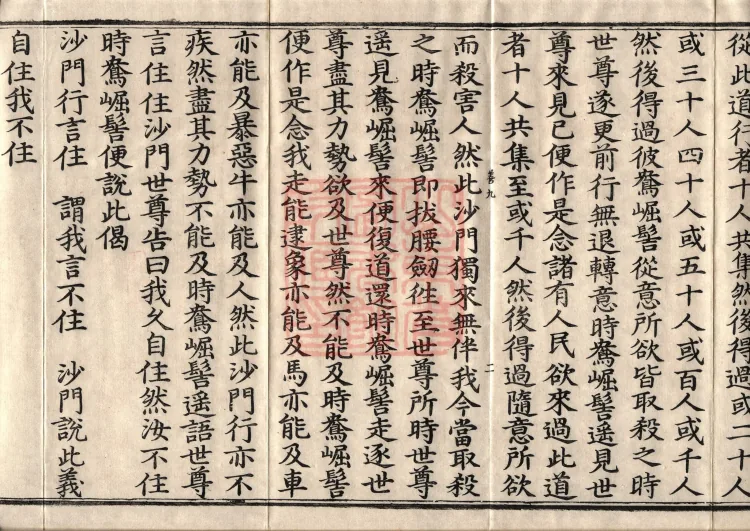 從此道行者十人共集然後得過或二十人
或三十人四十人或五十人或百人或千人
然後得過彼鴦崛髻從意所欲皆取殺之時
世尊遂更前行無退轉意時鴦崛髻遥見世
尊來見已便作是念諸有人民欲來過此道
者十人共集至或千人然後得過隨意所欲
善九 二
而殺害人然此沙門獨來無伴我今當取殺
之時鴦崛髻即拔腰劒徃至世尊所時世尊
遥見鴦崛髻來便復道還時鴦崛髻走逐世
尊盡其力勢欲及世尊然不能及時鴦崛髻
便作是念我走能逮象亦能及馬亦能及車
亦能及暴惡牛亦能及人然此沙門行亦不
疾然盡其力勢不能及時鴦崛髻遥語世尊
言住住沙門世尊告曰我久自住然汝不住
時鴦崛髻便說此偈
沙門行言住 謂我言不住 沙門說此義
自住我不住